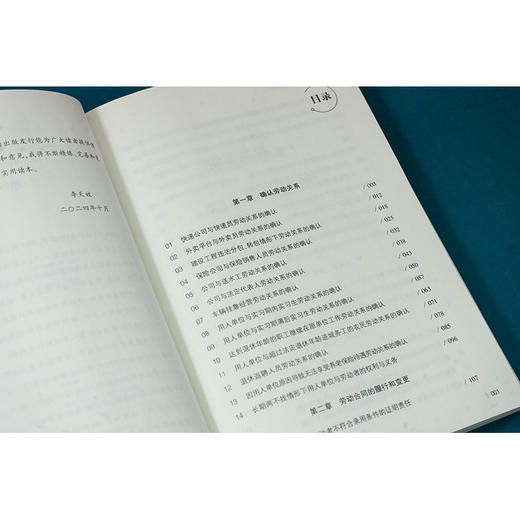 出版发行能为广大读者提供
和意见，我将不断精炼、完善和
实用读本。
二〇二四年十月
目录
第一章 确认劳动关系
01 快递公司与快递员劳动关系的确认 / 003
02 外卖平台与外卖员劳动关系的确认 / 012
03 建设工程违法分包、转包情形下劳动关系的确认 / 018
04 保险公司与保险销售人员劳动关系的确认 / 025
05 公司与送水工劳动关系的确认 / 032
06 公司与法定代表人劳动关系的确认 / 038
07 车辆挂靠经营劳动关系的确认 / 043
08 用人单位与实习期内实习生劳动关系的确认 / 050
09 用人单位与实习期满后实习生劳动关系的确认 / 057
10 达到退休年龄的职工继续在原单位工作劳动关系的确认 / 063
11 用人单位与超过法定退休年龄进城务工的农民劳动关系的确认 / 071
12 退休返聘人员劳动关系的确认 / 078
13 因用人单位原因导致无法享受养老保险待遇劳动关系的确认 / 085
14 长期两不找情形下用人单位与劳动者的权利与义务 / 096
第二章 劳动合同的履行和变更
动者不符合录用条件的证明责任 / 107
001